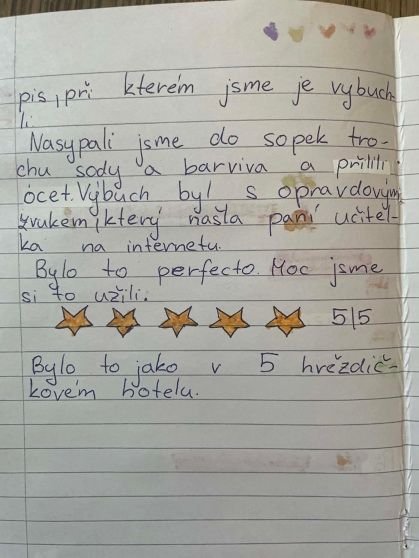 pis, při kterém jsme je vybuch-
li
Nasypali jsme do sopek tro-
chu sody a barviva a přilili
ocet. Výbuch byl s opravdovým
zvukem, který našla paní učitel-
ka na internetu.
Bylo to perfecto. Moc jsme
si to užili.
5/5
Bylo to jako v 5 hvězdič-
kovém hotelu.